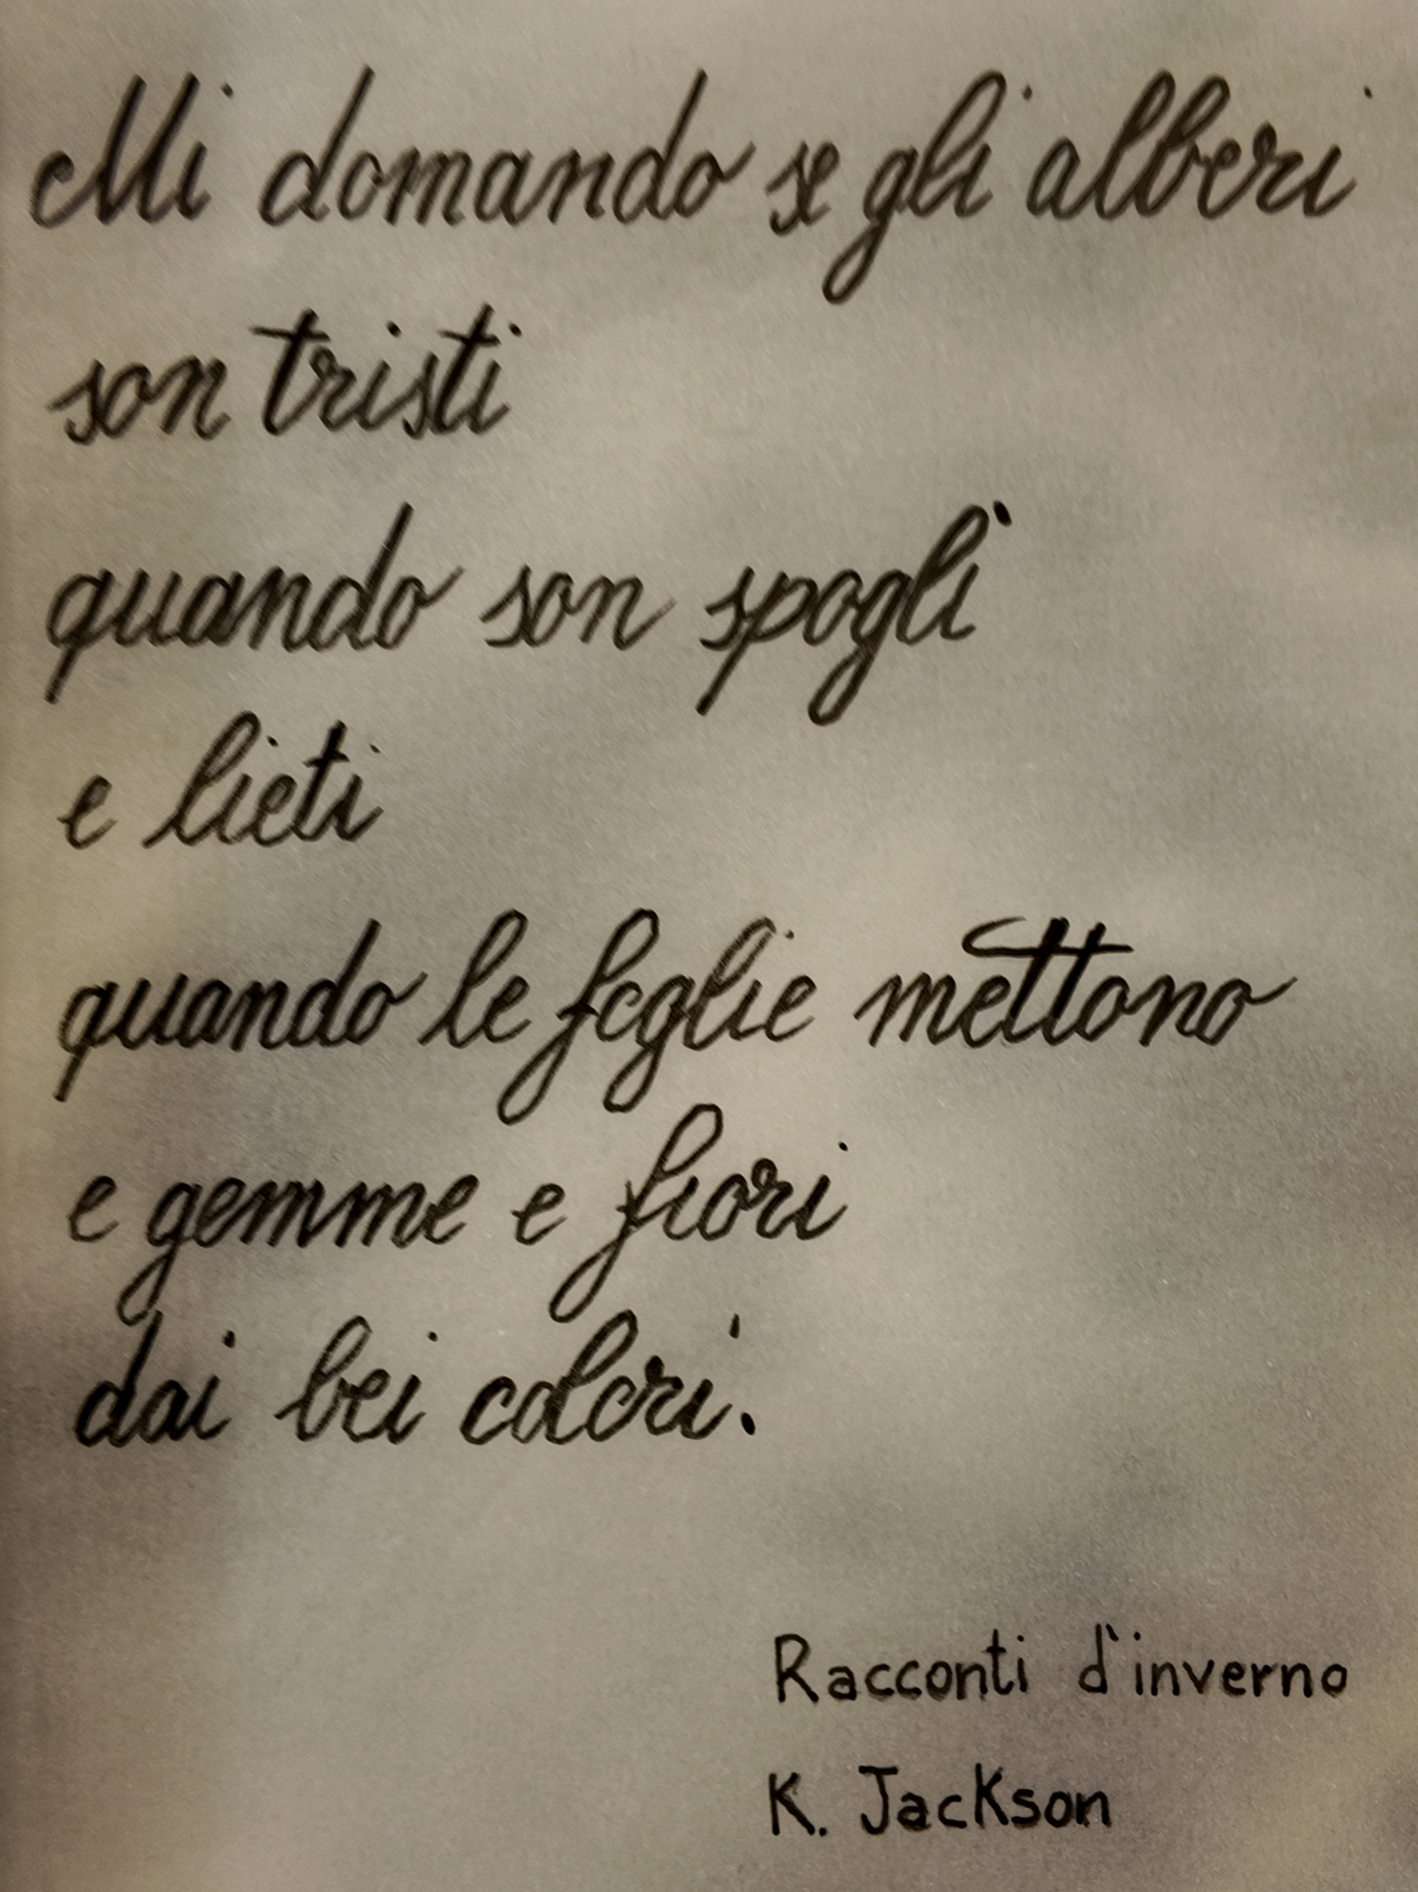 Mi domando se gli alberi
son tristi
quando son spogli
e lieti
quando le foglie mettono
e gemme e fiori
dai bei colori.
Racconti d'inverno
K. Jackson